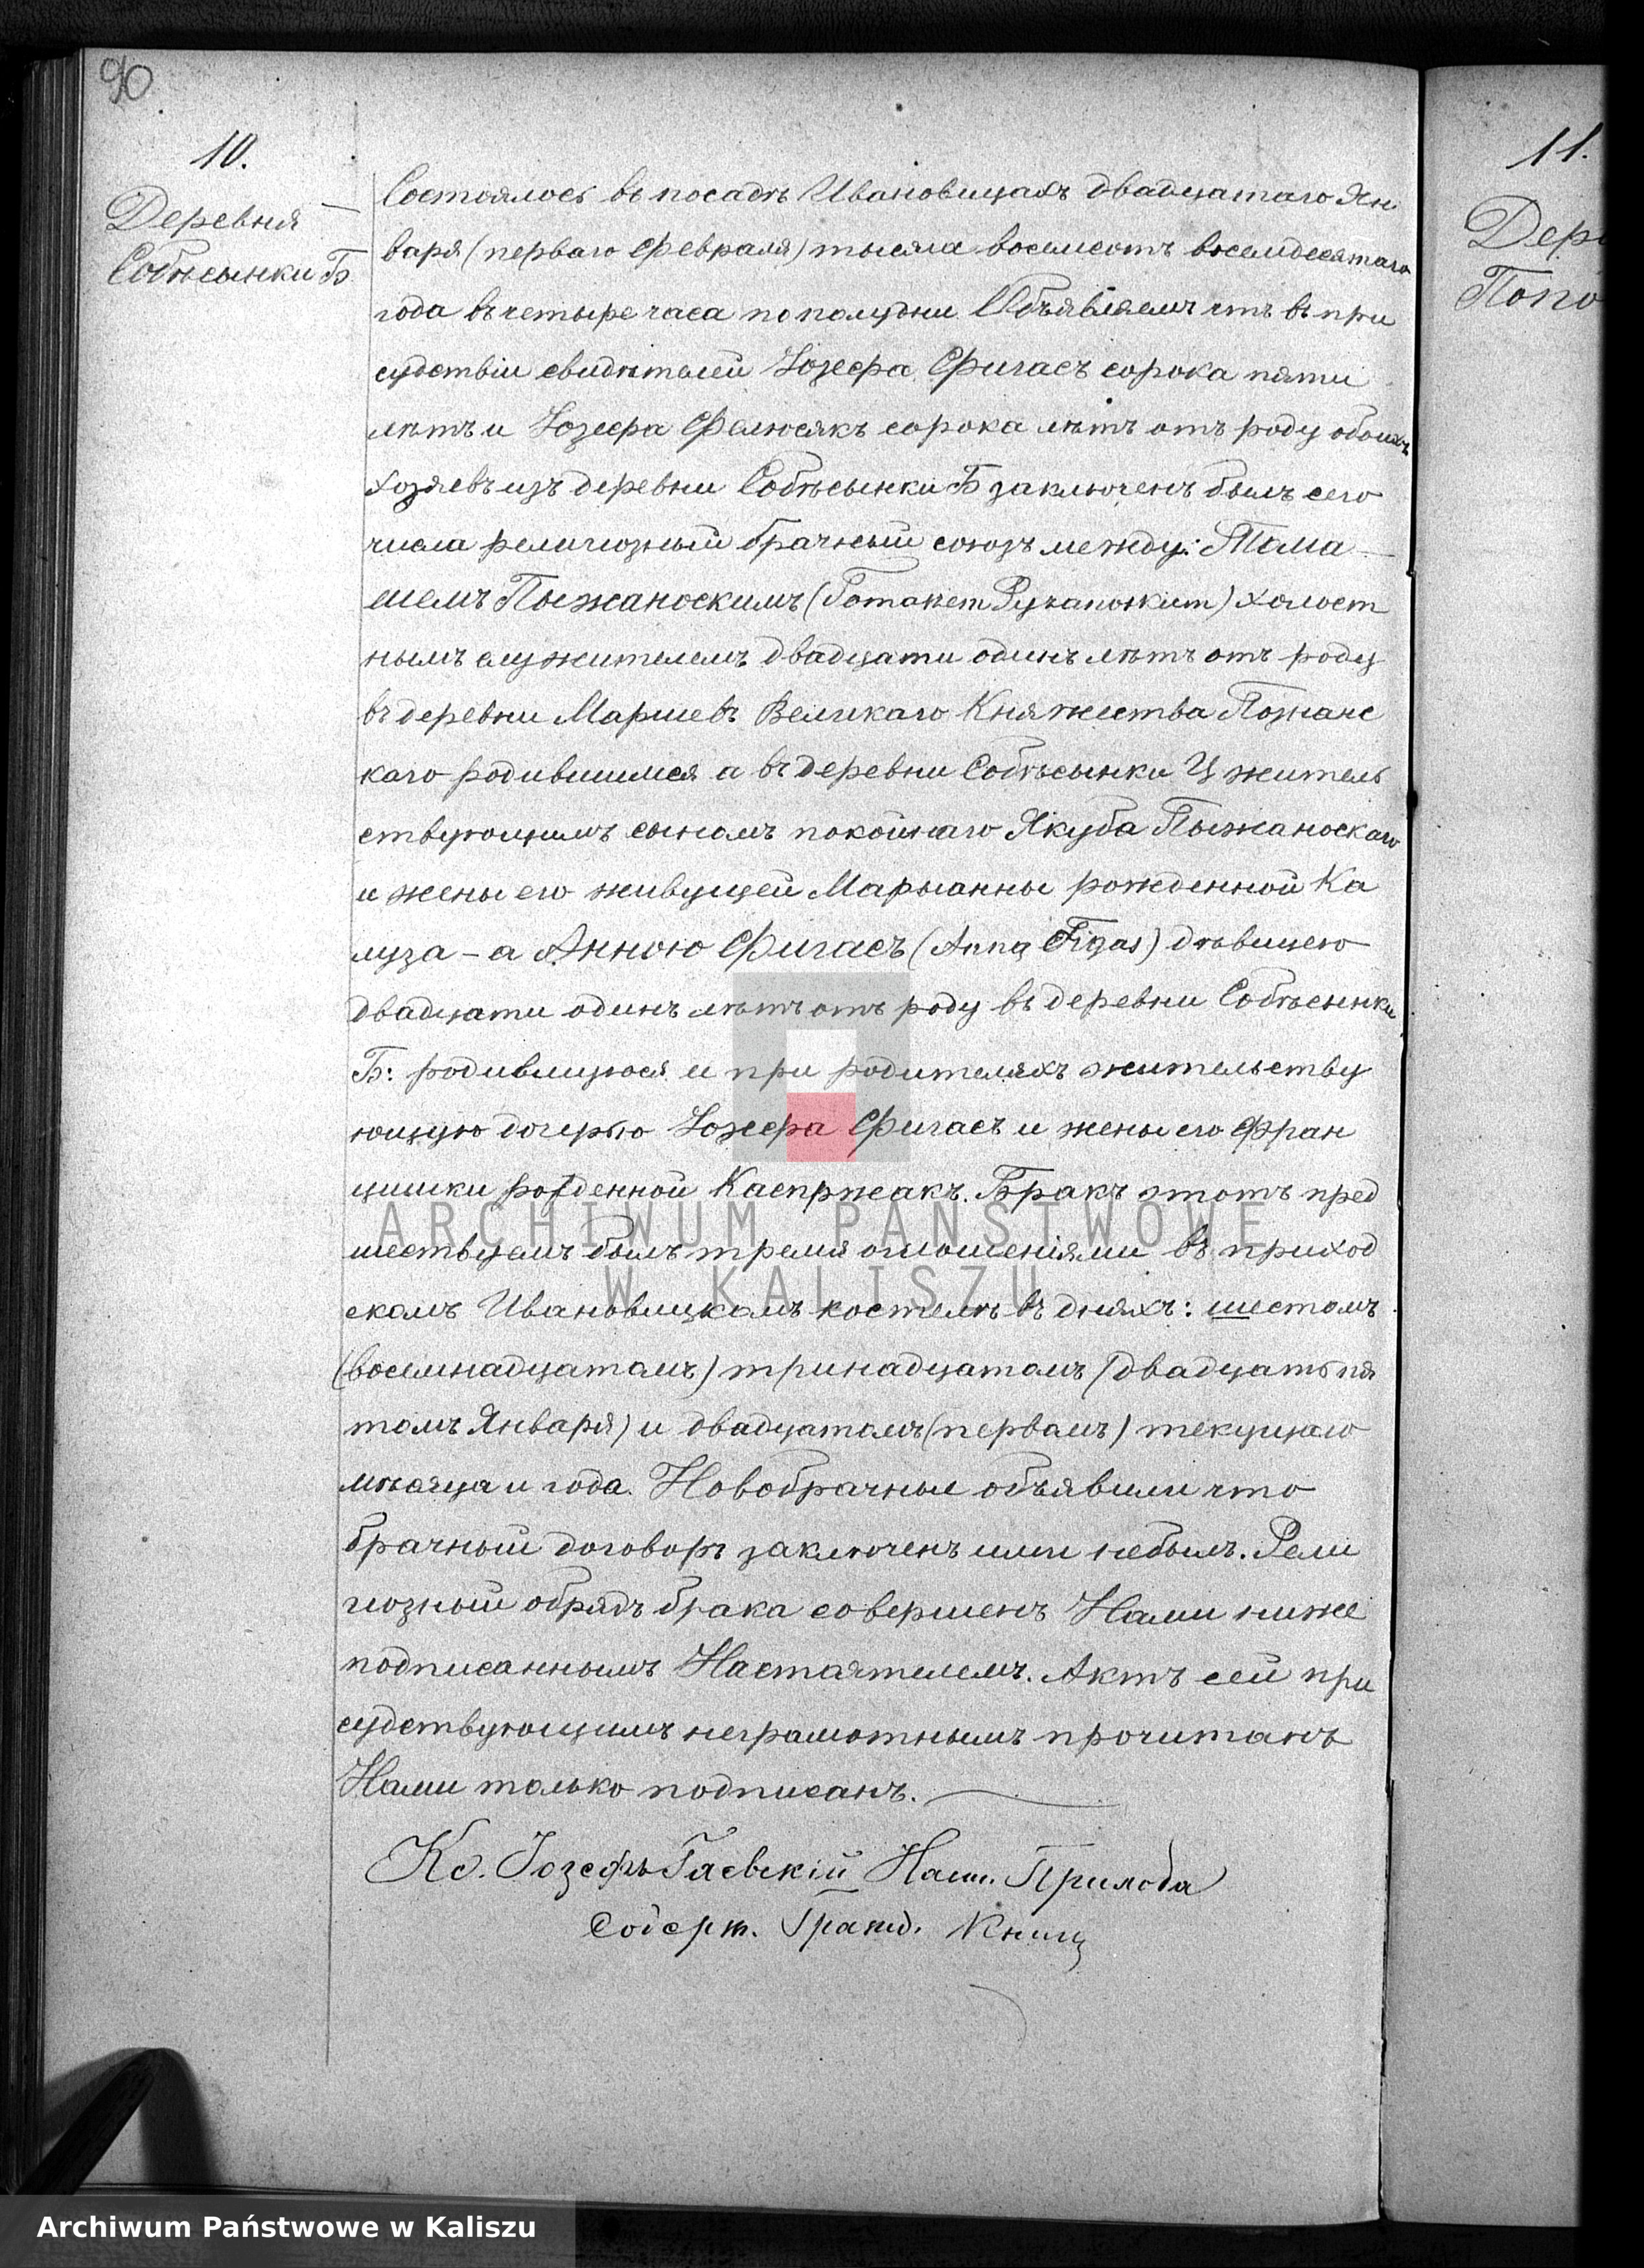 90
10.
Деревня
Собѣсынки Б
Состоялось въ посадѣ Ивановицахъ двадцатаго Ян
варя (перваго Февраля) тысяча восемсотъ восемдесятаго
года въ четыре часа по полудни. Объявляемъ что въ при
судствіи свидѣтелей Іозефа Фигасъ сорока пяти
лѣтъ и Іозефа Фелюсякъ сорока лѣтъ отъ роду обоихъ
хозяевъ изъ деревни Собѣсынки Б заключенъ былъ сего
числа религіозный брачный союзъ между: Тома
шемъ Пыжаноскимъ () холост
нымъ служителемъ двадцати одинъ лѣтъ отъ роду
въ деревни Маршевъ Великаго Княжества Познанс
каго родившимся а въ деревни Собѣсынки Ц житель
ствующимъ сыномъ покойнаго Якуба Пыжаноскаго
и жены его живущей Марыанны рожденной Ка
луза – а Анною Фигасъ (Anną Figas) дѣвицею
двадцати одинъ лѣтъ отъ роду въ деревни Собѣсынки
Б: родившуюся и при родителяхъ жительству
ющую дочерью Іозефа Фигасъ и жены его Фран
цишки рожденной Каспржакъ. Бракъ этотъ пред
шествуемъ былъ тремя оглошеніями въ приход
скомъ Ивановицкомъ костелѣ въ дняхъ: шестомъ
(восемнадцатомъ) тринадцатомъ (двадцать пя
томъ Января) и двадцатомъ (первомъ) текущаго
мѣсяца и года. Новобрачные объявили что
брачный договоръ заключенъ ими небылъ. Рели
гіозный обрядъ брака совершенъ Нами ниже
подписаннымъ Настоятелемъ. Актъ сей при
судствующимъ неграмотнымъ прочитанъ
Нами только подписанъ.
Кс. Іозефъ Гаевскій Наст. Прихода
Содерж. Гражд. Книги
11.
Дер
Попо
ARCHIWUM PAŃSTWOWE
W KALISZU
Archiwum Państwowe w Kaliszu